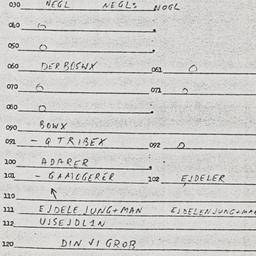 030 NEGL NEGL: NOGL
040 O
050 O
060 DERBOSWX 061 O
070 O 071 O
080 O
090 BOWX
091 - QTRIBEX 092 O
100 ADARER
101 - GAMOGERER 102 EJDELER
110
111 EJDELE JUNG+MAN EJDELENJUNG+MA
112 UJSEJDL1N
120 DIN VI GROB